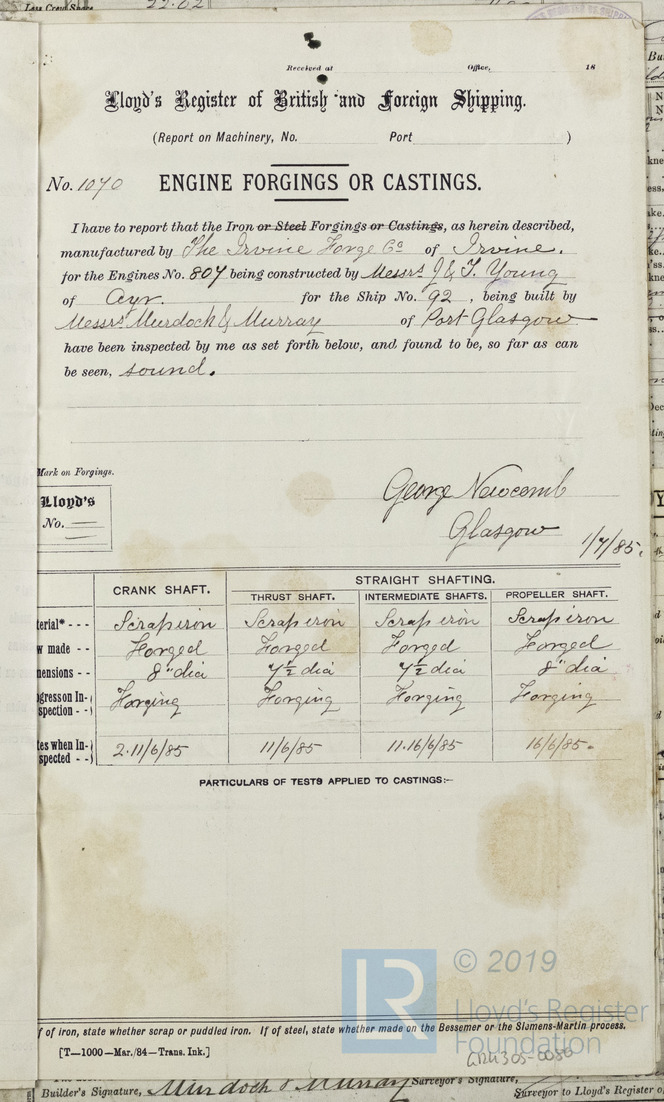 Received at Office, 18
Lloyd's Register of British and Foreign Shipping.
(Report on Machinery, No. Port )
No. 1070 ENGINE FORGINGS OR CASTINGS.
I have to report that the Iron or Steel Forgings or Castings, as herein described,
manufactured by The Irvine Forge Co of Irvine.
for the Engines No. 807 being constructed by Messrs J & T. Young
of Ayr. for the Ship No. 92, being built by
Messrs Murdock & Murray of Port Glasgow
have been inspected by me as set forth below, and found to be, so far as can
be seen, sound.
Mark on Forgings.
Lloyd's
No.
George Newcomb
Glasgow 1/7/85.
CRANK SHAFT. STRAIGHT SHAFTING.
THRUST SHAFT. INTERMEDIATE SHAFTS. PROPELLER SHAFT.
terial* - - - Scrap iron Scrap iron Scrap iron Scrap iron
w made - - Forged Forged Forged Forged
mensions - - 8" dia 7½ dia 7½ dia 8" dia
ogress on In-
spection - - Forging Forging Forging Forging
tes when In-
spected - - 2.11/6/85 11/6/85 11.16/6/85 16/6/85.
PARTICULARS OF TESTS APPLIED TO CASTINGS:–
© 2019
LR Lloyd's Register
Foundation
f of iron, state whether scrap or puddled iron. If of steel, state whether made on the Bessemer or the Siemens-Martin process.
[T—1000—Mar./84—Trans. Ink.]
Builder's Signature, Murdoch & Murray Surveyor's Signature,
Surveyor to Lloyd's Register o